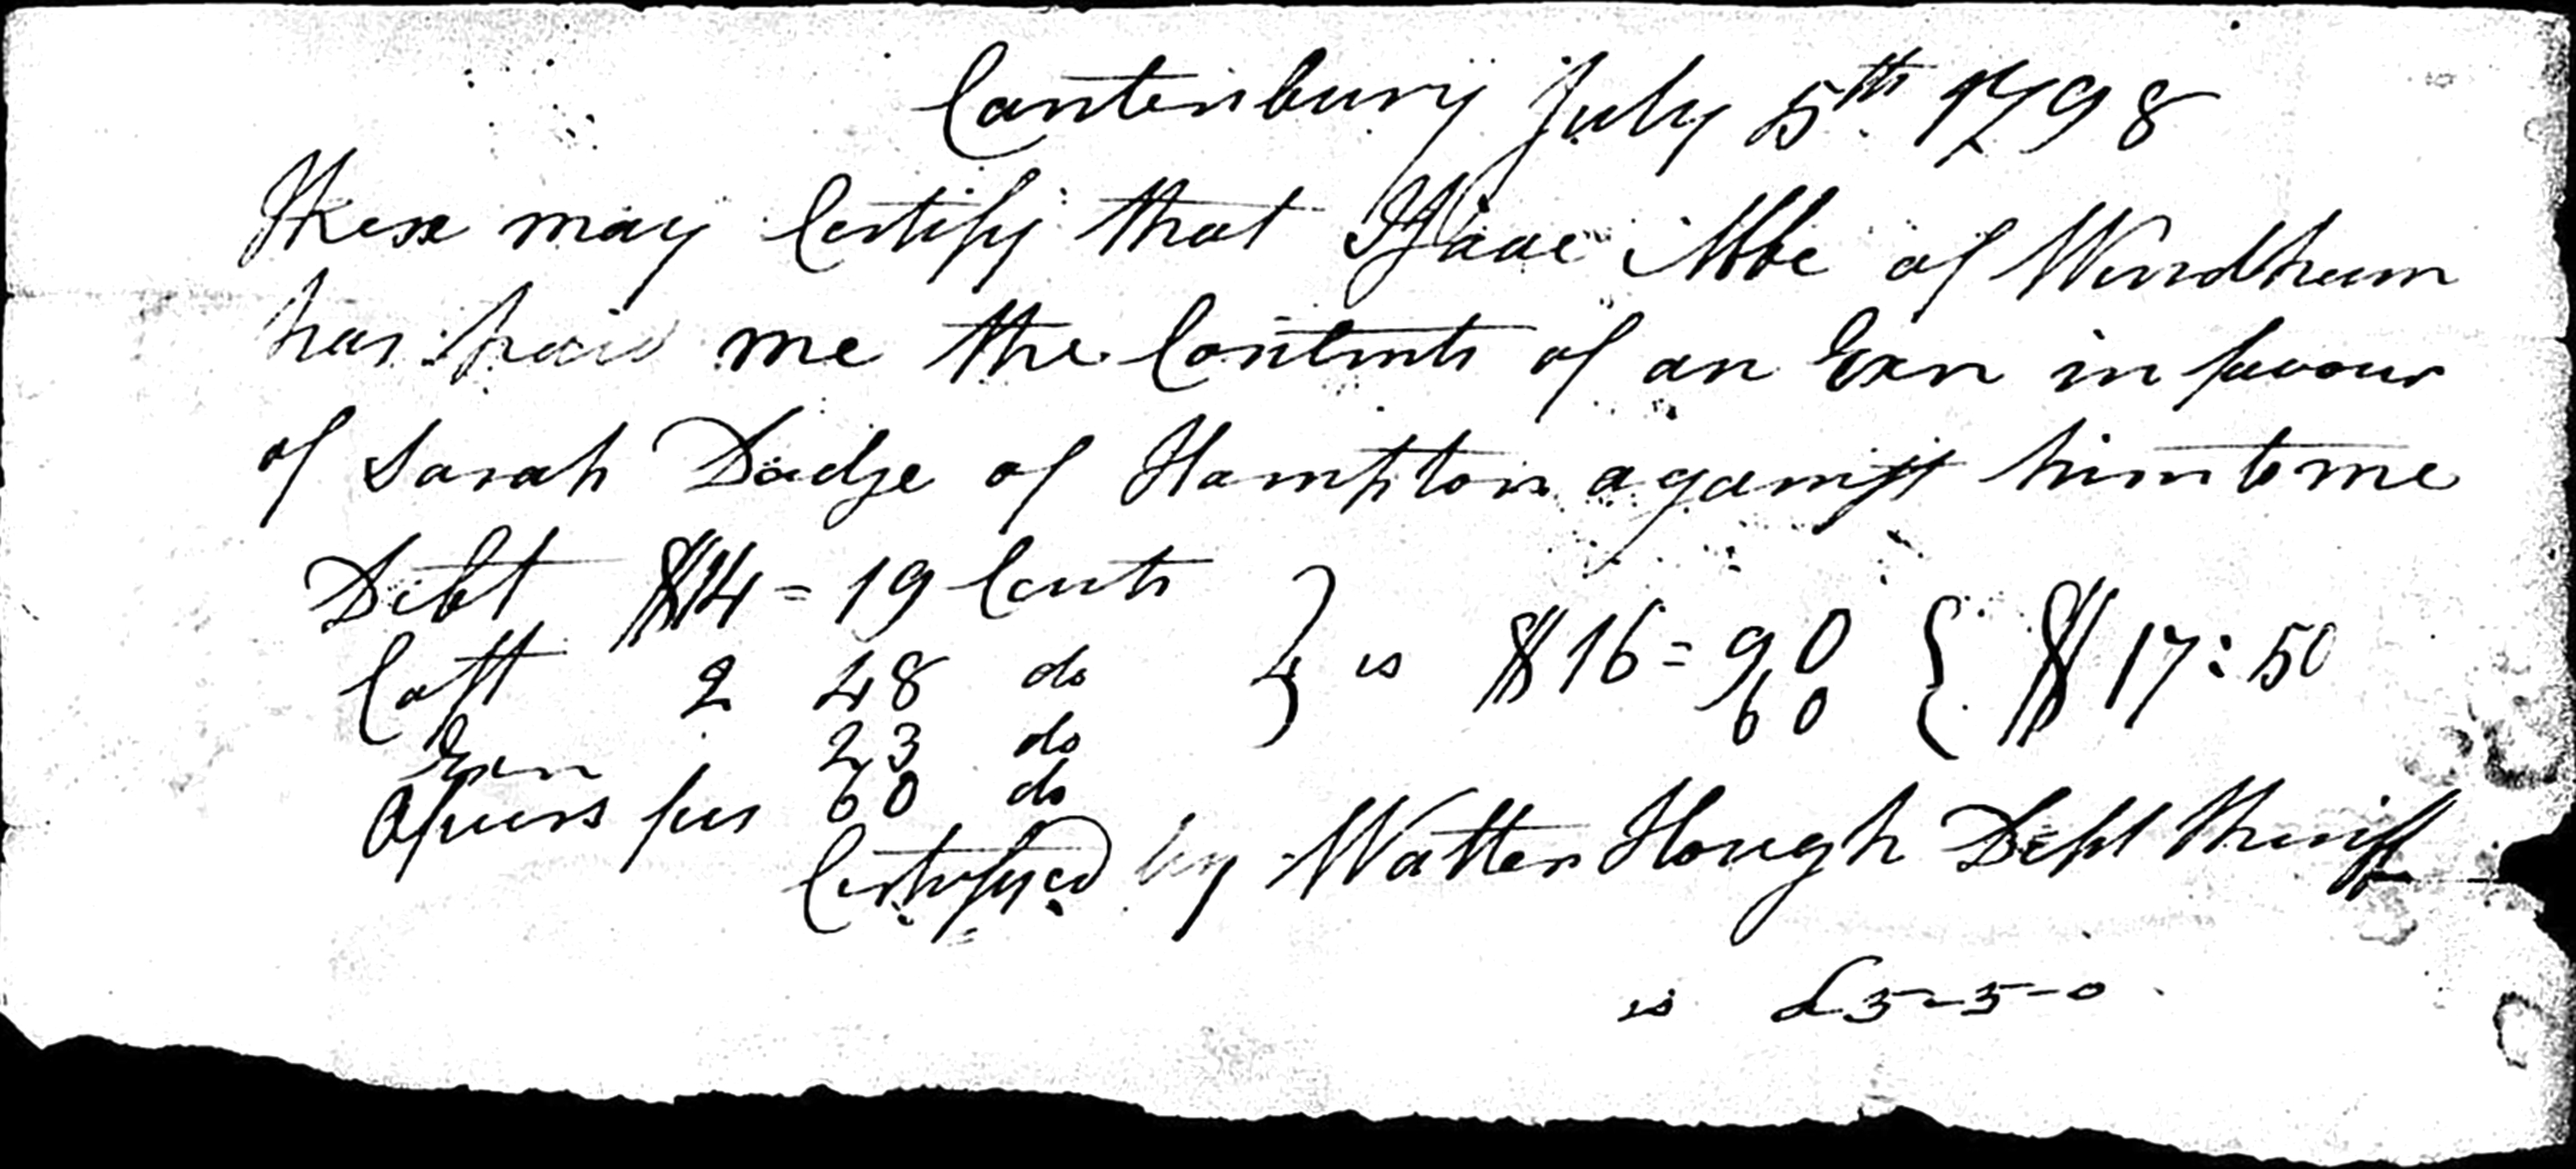 Canterbury July 5th 1798
These may Certify that Isaac Abbe of Windham
has paid me the Contents of an Exn in favour
of Sarah Dodge of Hampton against him to me
Debt $14=19 Cents
Cost 2 48 do } is $16=90 { $17:50
Exn 23 do 60
Officers fees 60 do
Certifyed by Walter Hough Dept Sheriff
is £5-5-0